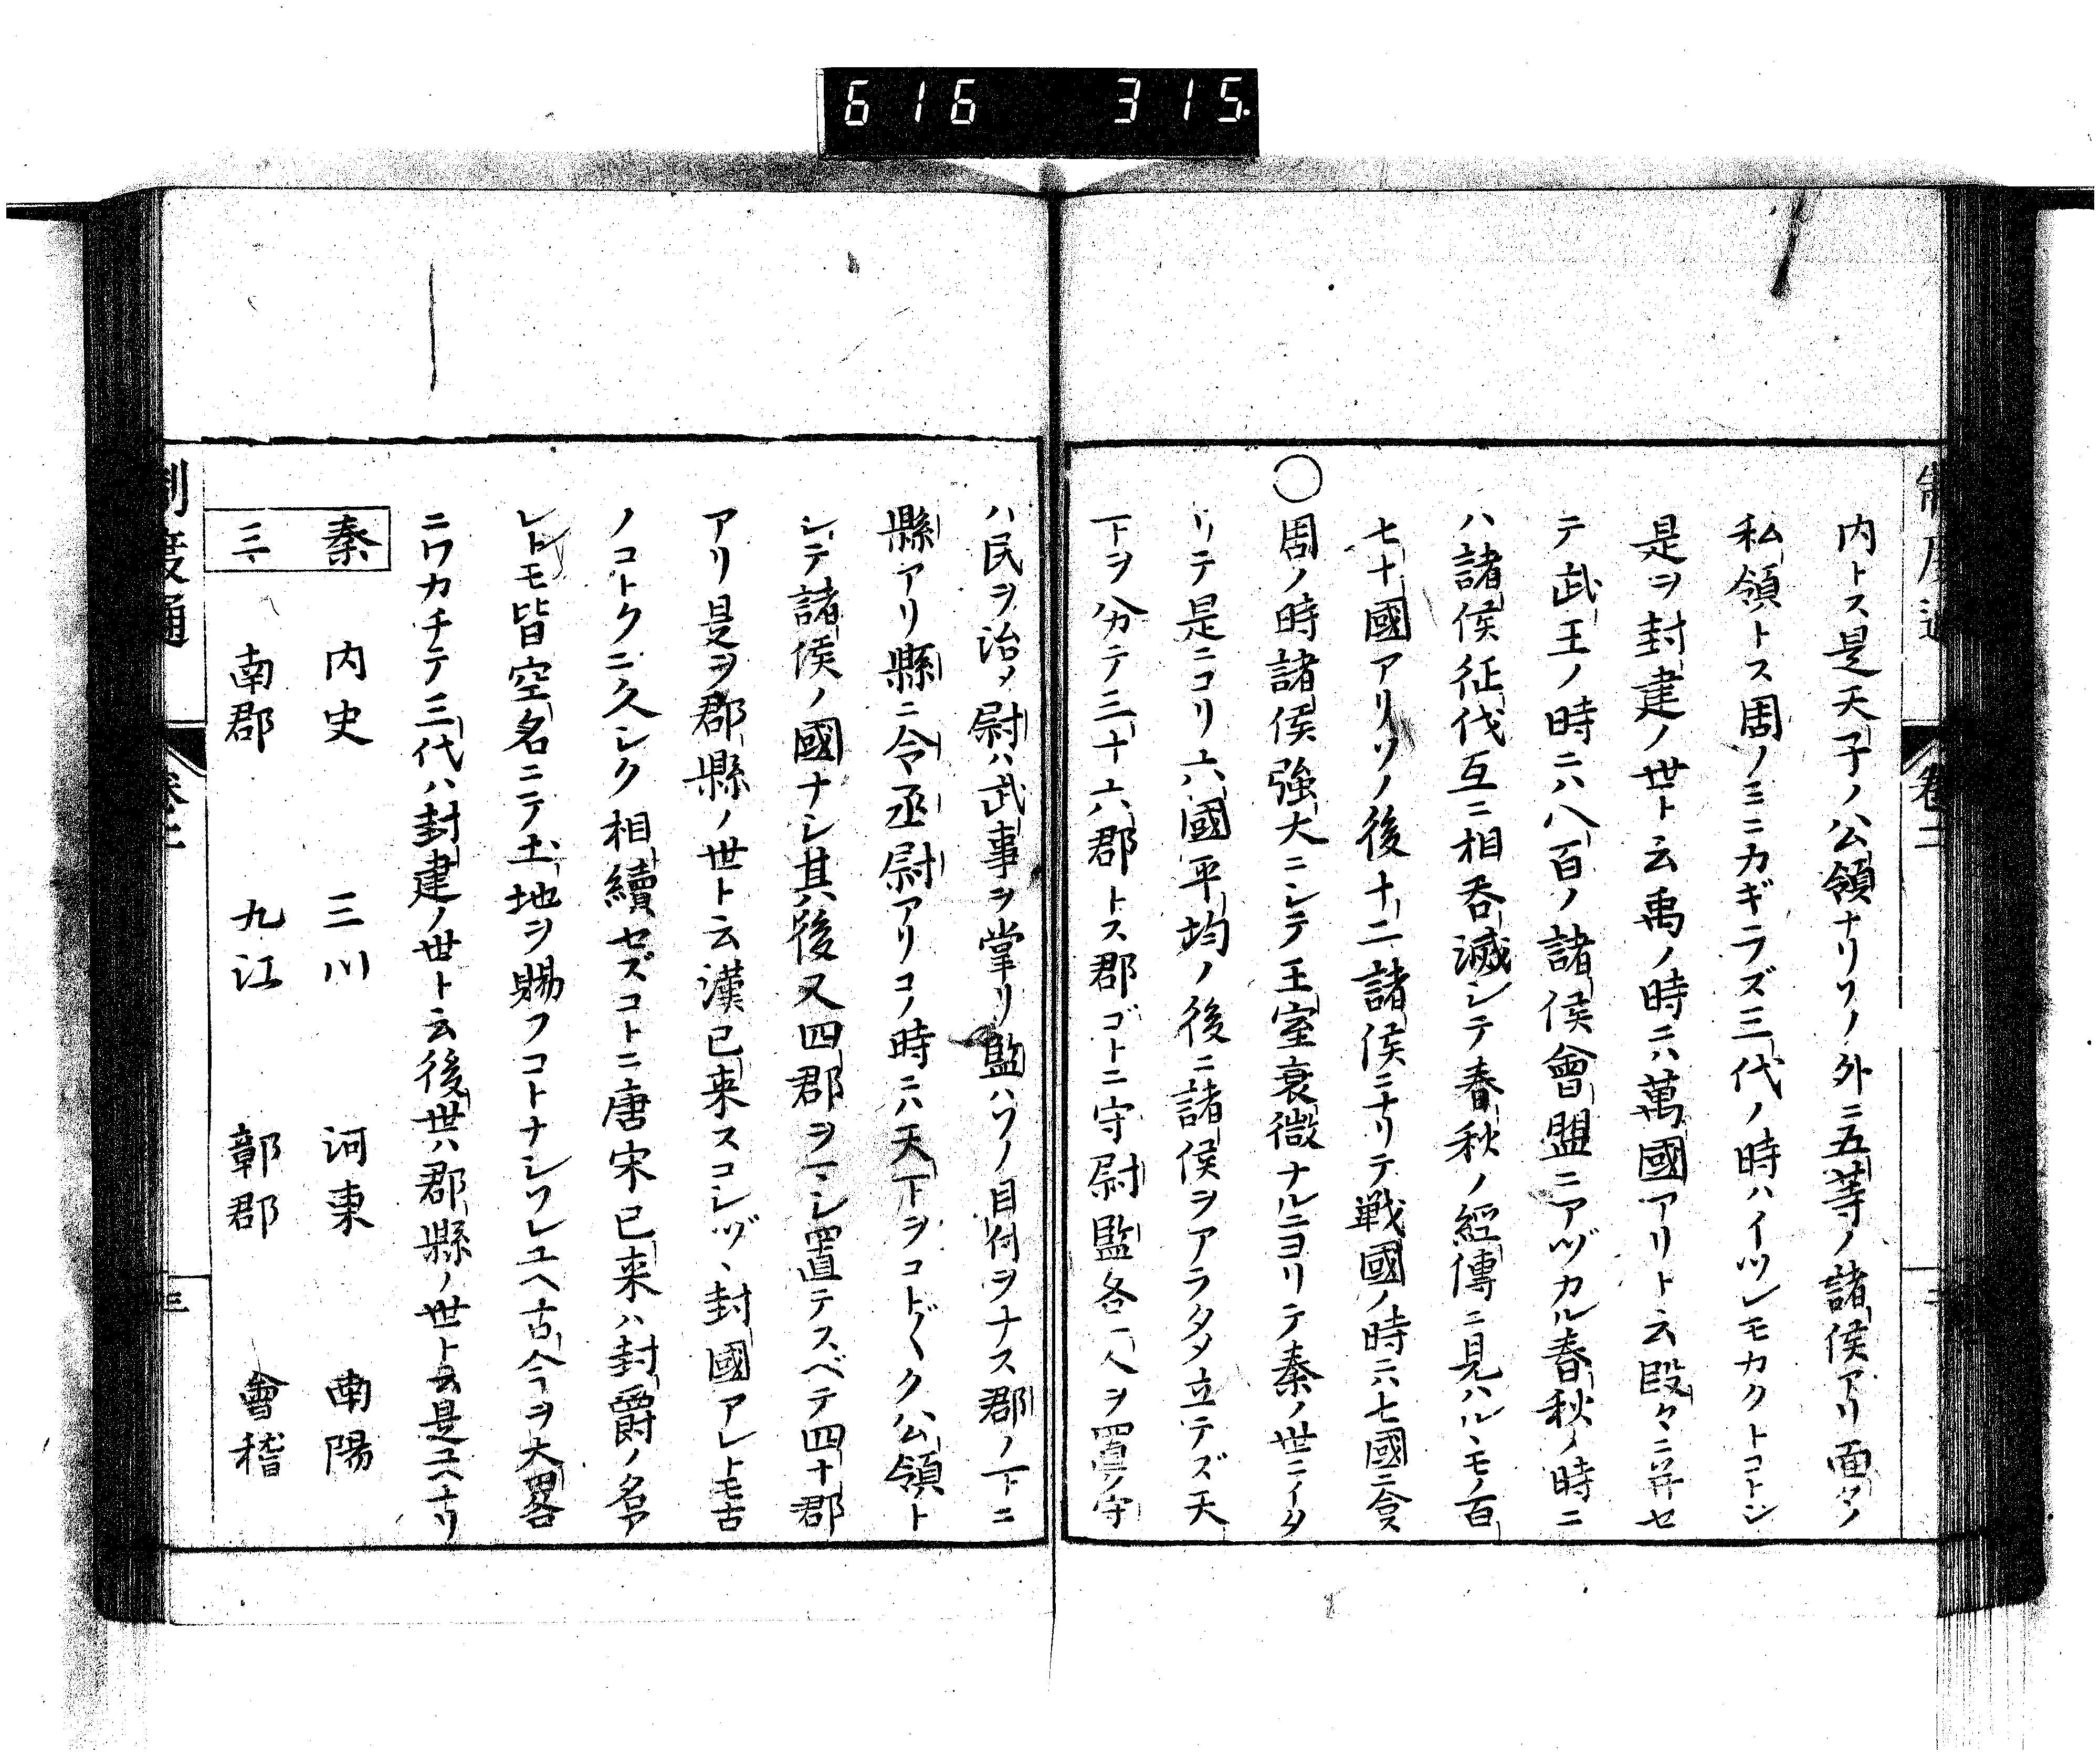 616 315.
制度通 卷二
内トス是天子ノ公領ナリソノ外ニ五等ノ諸侯アリ面々ノ
私領トス周ノミニカギラズ三代ノ時ハイツレモカクトコトシ
是ヲ封建ノ世ト云禹ノ時ニハ萬國アリト云段々ニ并セ
テ武王ノ時ニハ八百ノ諸侯會盟ニアヅカル春秋ノ時ニ
ハ諸侯征伐互ニ相呑滅シテ春秋ノ經傳ニ見ハルヽモノ百
七十國アリソノ後十二諸侯ニナリテ戦國ノ時ニハ七國ニ合ス
〇周ノ時諸侯強大ニシテ王室衰微ナルニヨリテ秦ノ世ニイタ
リテ是ニコリ六國平均ノ後ニ諸侯ヲアラタメ立テズ天
下ヲ分テ三十六郡トス郡ゴトニ守尉監各一人ヲ置ク守
ハ民ヲ治メ尉ハ武事ヲ掌リ監ハソノ目付ヲナス郡ノ下ニ
縣アリ縣ニ令丞尉アリコノ時ニハ天下ヲコト〲ク公領ト
シテ諸侯ノ國ナシ其後又四郡ヲマシ置テスベテ四十郡
アリ是ヲ郡縣ノ世ト云漢已来スコシヅヽ封國アレトモ古
ノコトクニ久シク相續セズコトニ唐宋已来ハ封爵ノ名ア
レトモ皆空名ニテ土地ヲ賜フコトナシソレユヘ古今ヲ大畧
ニワカチテ三代ハ封建ノ世ト云後世ハ郡縣ノ世ト云是ユヘナリ
秦 内史 三川 河東 南陽
三 南郡 九江 鄣郡 會稽
制度通 卷二 三